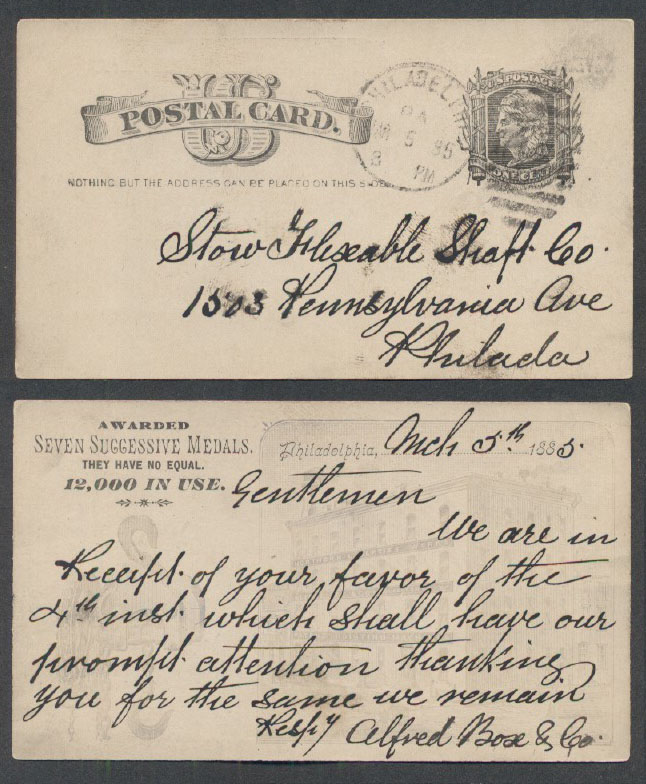 US
POSTAL CARD.
NOTHING BUT THE ADDRESS CAN BE PLACED ON THIS SIDE
PHILADELPHIA
PA
5 85
3 PM
U.S. POSTAGE
ONE CENT
Stow Flexable Shaft Co.
1503 Pennsylvania Ave
Philada
AWARDED
SEVEN SUCCESSIVE MEDALS.
THEY HAVE NO EQUAL.
12,000 IN USE.
Philadelphia, Mch 5th 1885
Gentlemen
We are in
Receipt of your favor of the
4th inst. which shall have our
prompt attention thanking
you for the same we remain
Respy Alfred Box & Co.